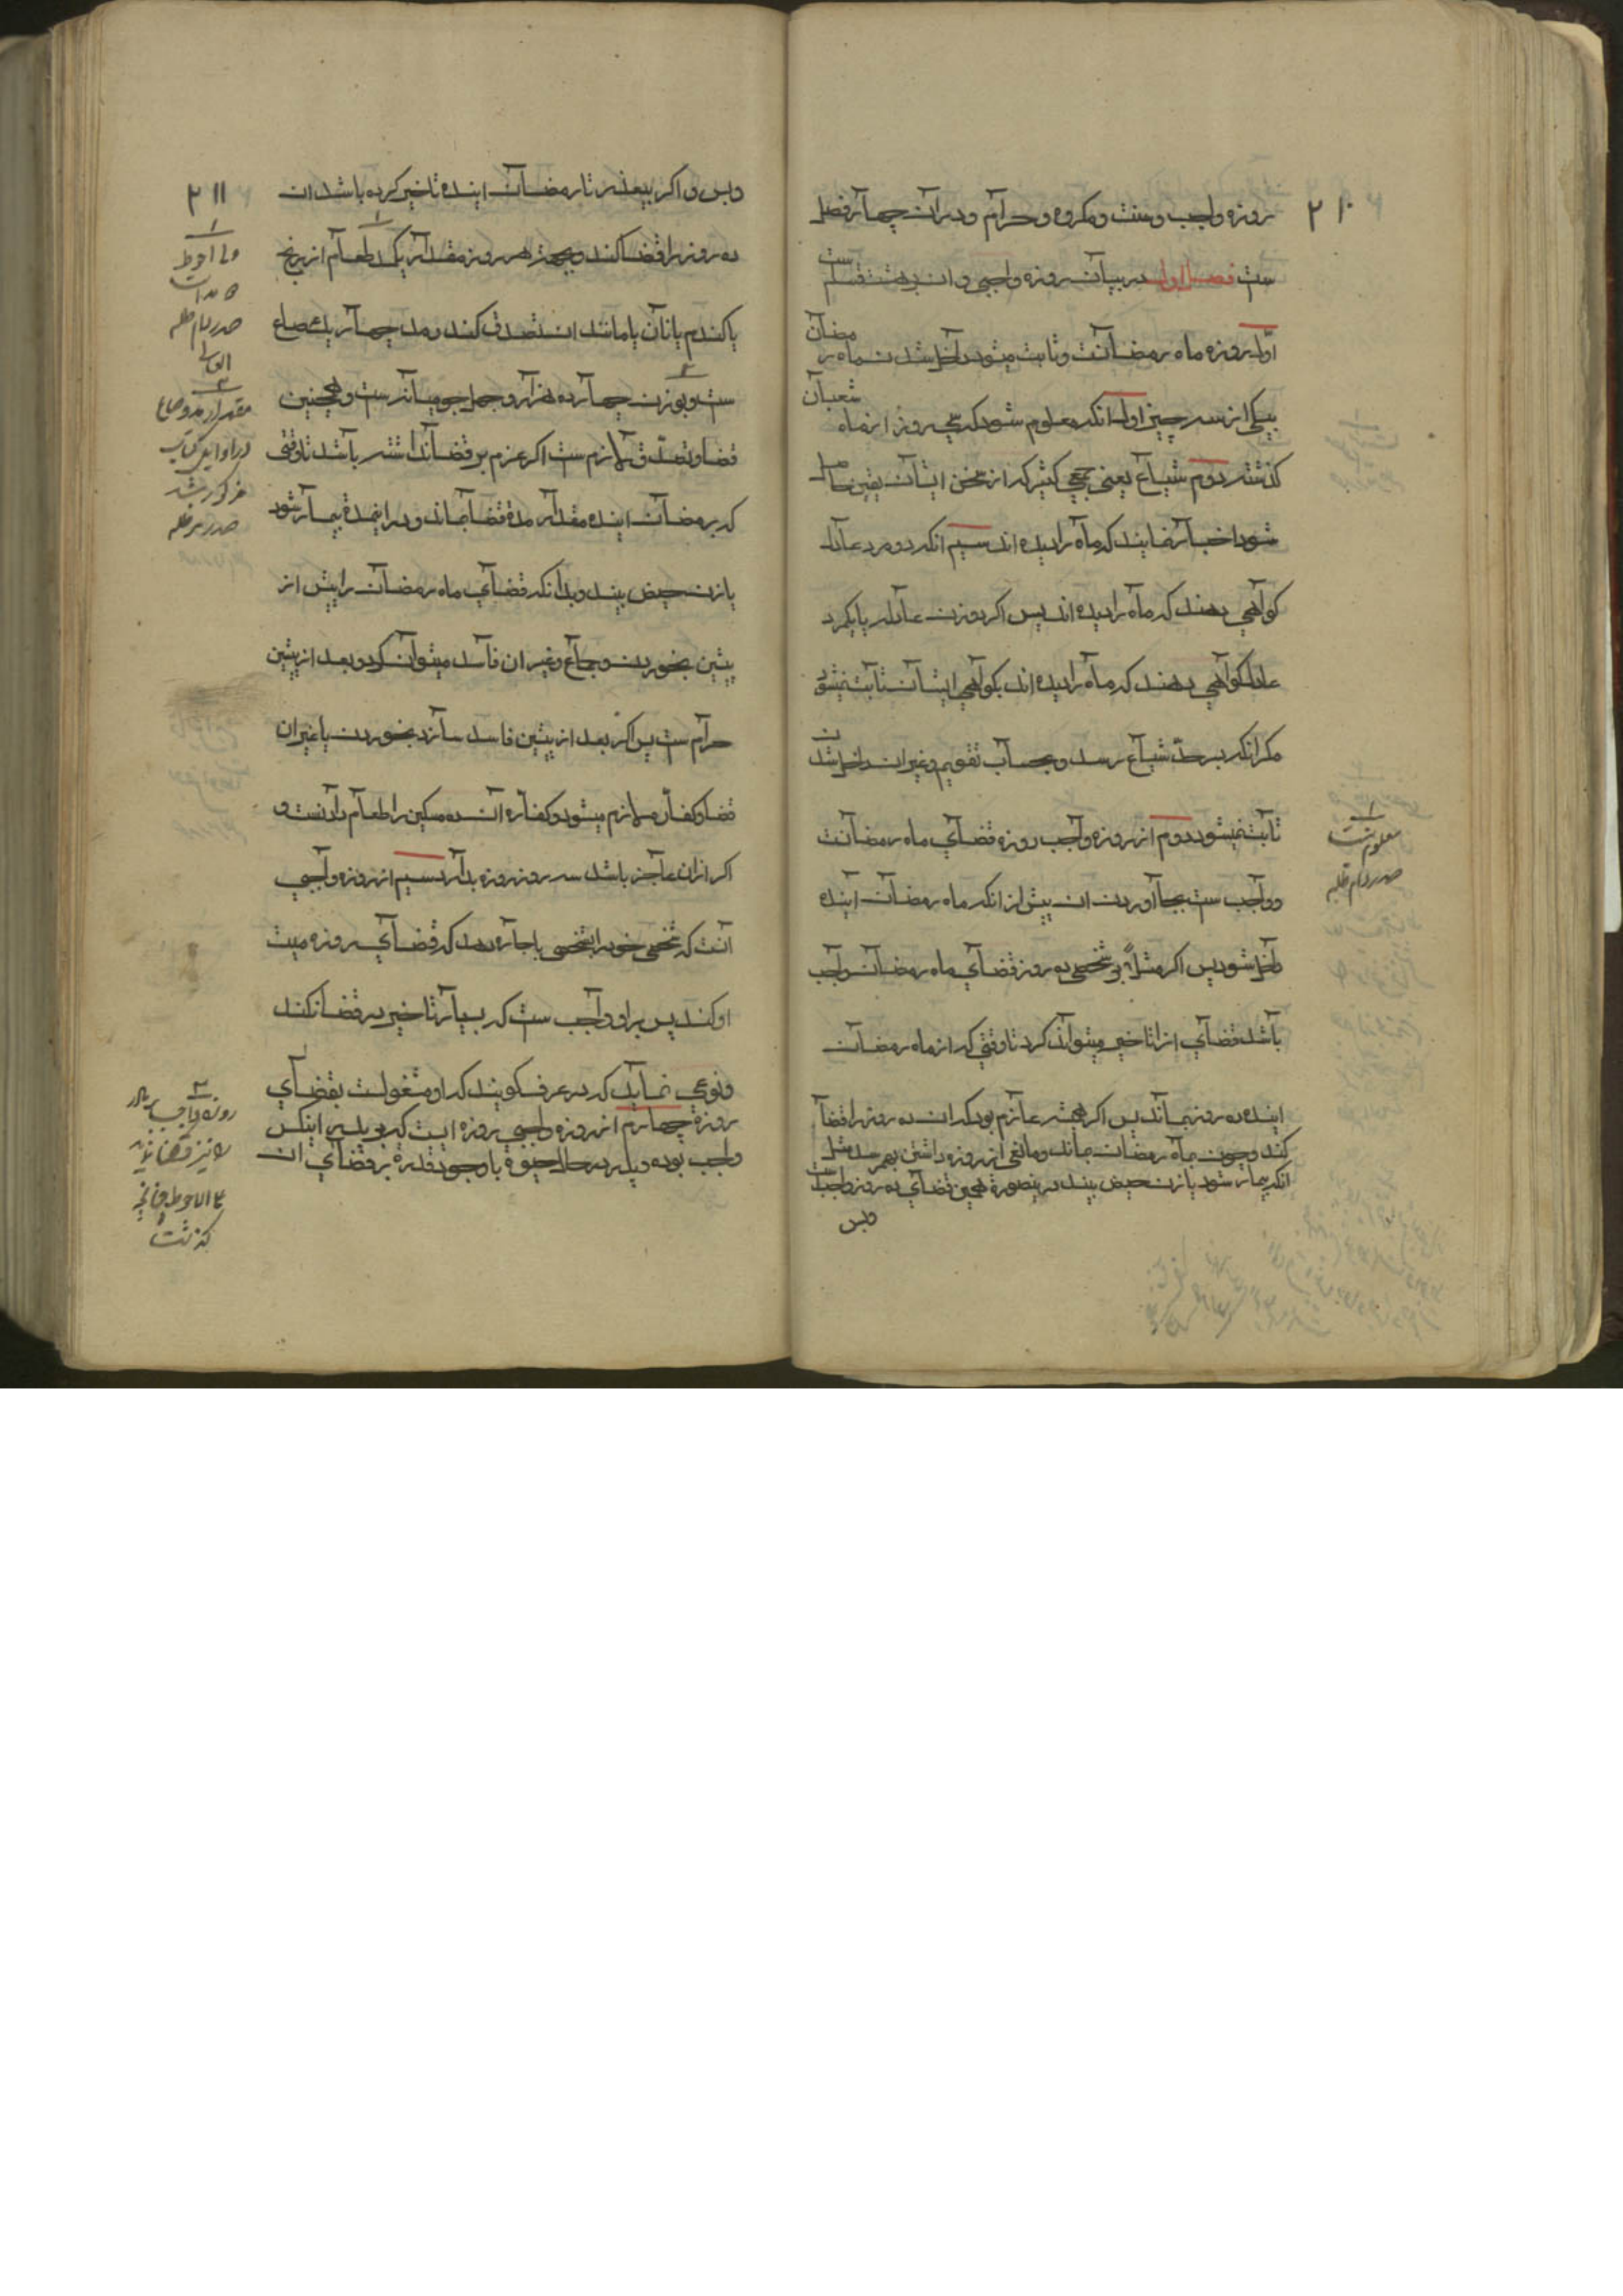 ۲۱۰
روزه واجب و سنت و مکروه و حرام و در ان چهار فصل
ست فصل اول در بیان روزه واجبی و ان بر هشت قسم ست
اول روزه ماه رمضانست و ثابت میشود داخل شدن ماه رمضان
بیکی از سه چیز اول انکه معلوم شود که سی روز از ماه شعبان
کذشته دوم شیاع یعنی جمعی کثیر که از سخن ایشان یقین حاصل
شود اخبار نمایند که ماه را دیده اند سیم انکه دو مرد عادل
کواهی دهند که ماه را دیده اند پس اکر دو زن عادله یا یکمرد
عادل کواهی دهند که ماه را دیده اند بکواهی ایشان ثابت نمیشود
مکر انکه بر حد شیاع رسد و بحساب تقویم و غیر ان داخل شدن
ثابت نمیشود دوم از روزه واجب روزه قضای ماه رمضانست
و واجب ست بجا اوردن ان پیش از انکه ماه رمضان اینده
داخل شود پس اکر مثلاً بر شخصی ده روز قضای ماه رمضان واجب
باشد قضای انرا تاخیر میتواند کرد تا وقتی که از ماه رمضان
اینده ده روز بماند پس اکر همیشه عازم بود که ان ده روز را قضا
کند و چون بماه رمضان بماند و مانعی از روزه داشتن بهم رسد مثل
انکه بیمار شود یا زن حیض بیند درینصورة همین قضای ده روز واجبست
وبس
معلوم نیست
صدر دام ظله
۲۱۱
وبس و اکر بیعذر تا رمضان اینده تاخیر کرده باشد ان
ده روز را قضا کند و بجهة هر روز مقدار یک مد طعام از برنج
یا کندم یا نان یا مانند ان تصدق کند و مد چهار یک صاع
ست و بوزن چهارده هزار و چهل جو میانه ست و همچنین
قضا و تصدق لازم ست اکر عزم بر قضا نداشته باشد تا وقتی
که برمضان اینده مقدار مدة قضا بماند و در اینمدة بیمار شود
یا زن حیض بیند و بدانکه قضای ماه رمضان را پیش از
پیشین بخوردن و جماع و غیر ان فاسد میتوان کرد و بعد از پیشین
حرام ست پس اکر بعد از پیشین فاسد سازد بخوردن یا غیر ان
قضا و کفاره لازم میشود و کفاره ان ده مسکین را طعام دادنست و
اکر ازان عاجز باشد سه روز روزه بدارد سیم از روزه واجبی
انست که شخصی خود را بشخصی باجاره دهد که قضای روزه میت
او کند پس بر او واجب ست که بسیار تاخیر در قضا نکند
و نوعی نماید که در عرف کویند که او مشغولست بقضای
روزة چهارم از روزه واجبی روزه ایست که بر پدر اینکس
واجب بوده و پدر در حال حیوة با وجود قدرة بر قضای ان
ولی احوط
صدر دام ظله
مقدار مد و صاع
در اوایل کتاب
مذکور شد
صدر ظله
روزه واجب
را نیز قضا نماید
علی الاحوط چنانچه
کذشت